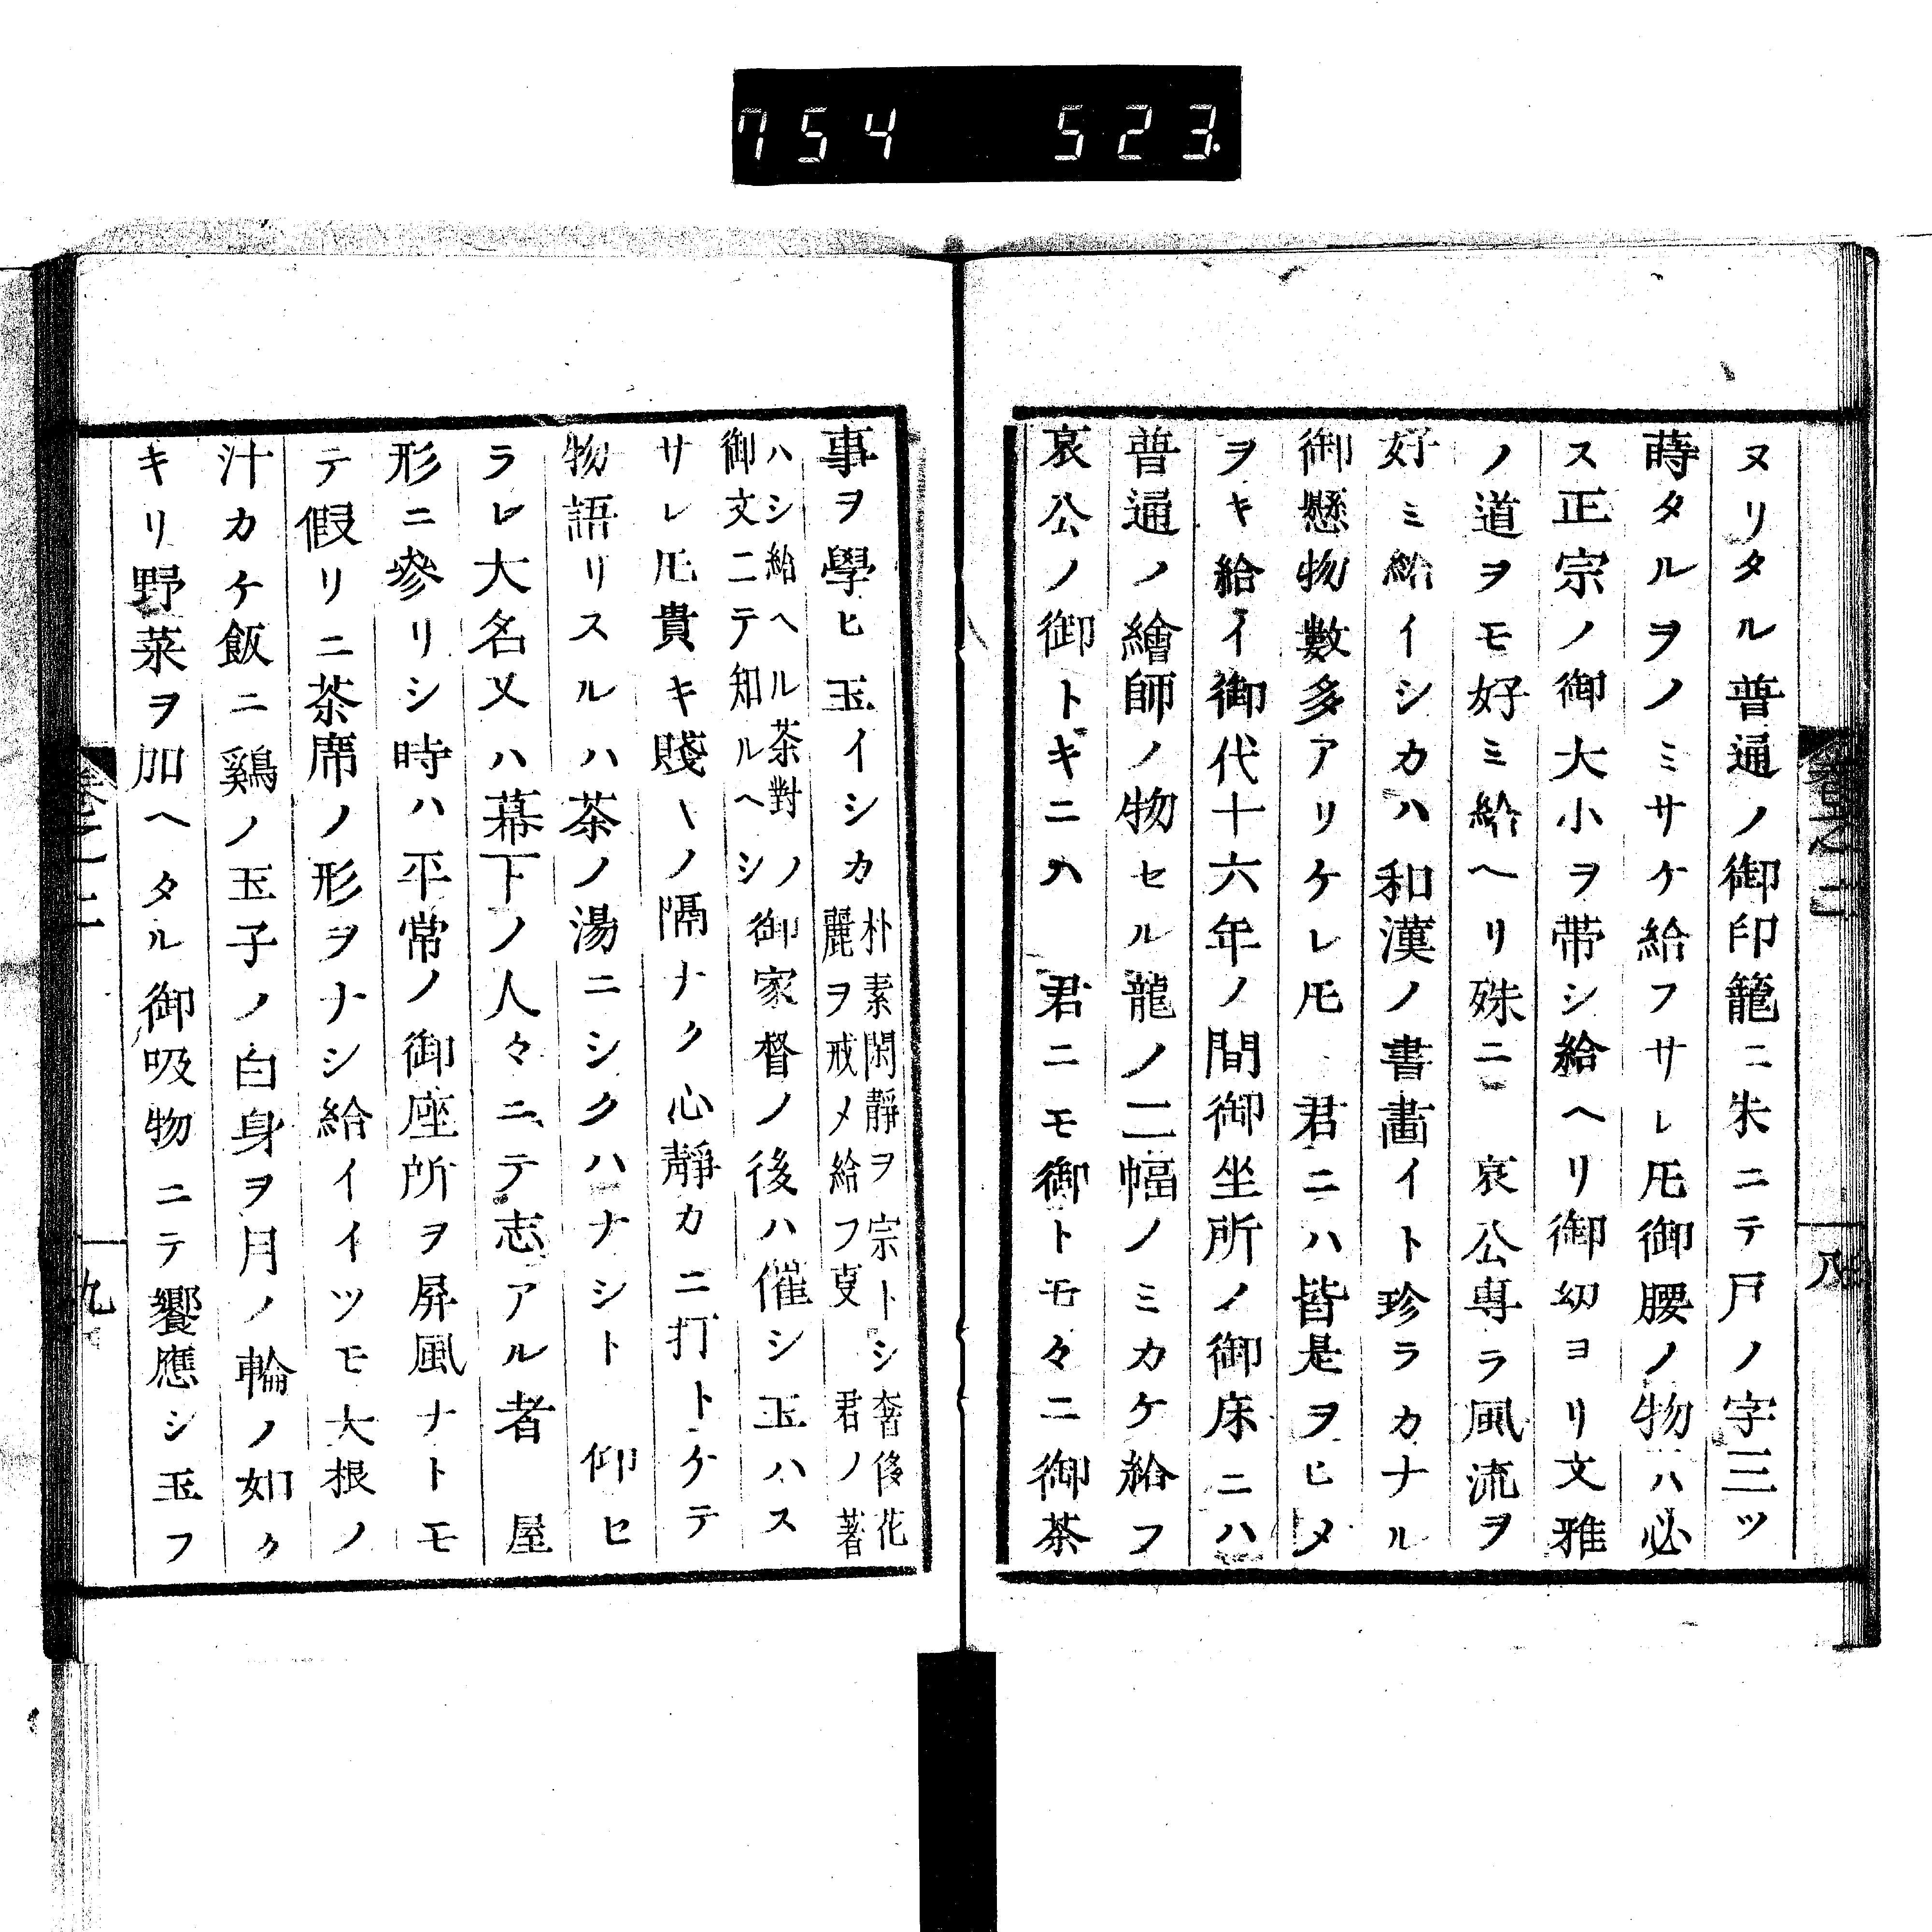 754 523
卷之二
八
ヌリタル普通ノ御印籠ニ朱ニテ戸ノ字三ツ
蒔タルヲノミサケ給フサレ𪜈御腰ノ物ハ必
ス正宗ノ御大小ヲ帯シ給ヘリ御幼ヨリ文雅
ノ道ヲモ好ミ給ヘリ殊ニ 哀公専ラ風流ヲ
好ミ給イシカハ和漢ノ書畵イト珍ラカナル
御懸物數多アリケレ𪜈 君ニハ皆是ヲヒメ
ヲキ給イ御代十六年ノ間御坐所ノ御床ニハ
普通ノ繪師ノ物セル龍ノ二幅ノミカケ給フ
哀公ノ御トキニハ 君ニモ御トモ々ニ御茶
事ヲ學ヒ玉イシカ
朴素閑靜ヲ宗トシ奢侈花
麗ヲ戒メ給フ叓 君ノ著
ハシ給ヘル茶對ノ
御文ニテ知ルヘシ
御家督ノ後ハ催シ玉ハス
サレ𪜈貴キ賤〳〵ノ隔ナク心靜カニ打トケテ
物語リスルハ茶ノ湯ニシクハナシト 仰セ
ラレ大名又ハ幕下ノ人々ニテ志アル者 屋
形ニ參リシ時ハ平常ノ御座所ヲ屏風ナトモ
テ假リニ茶席ノ形ヲナシ給イイツモ大根ノ
汁カケ飯ニ鷄ノ玉子ノ白身ヲ月ノ輪ノ如ク
キリ野菜ヲ加ヘタル御吸物ニテ饗應シ玉フ
卷之二
九